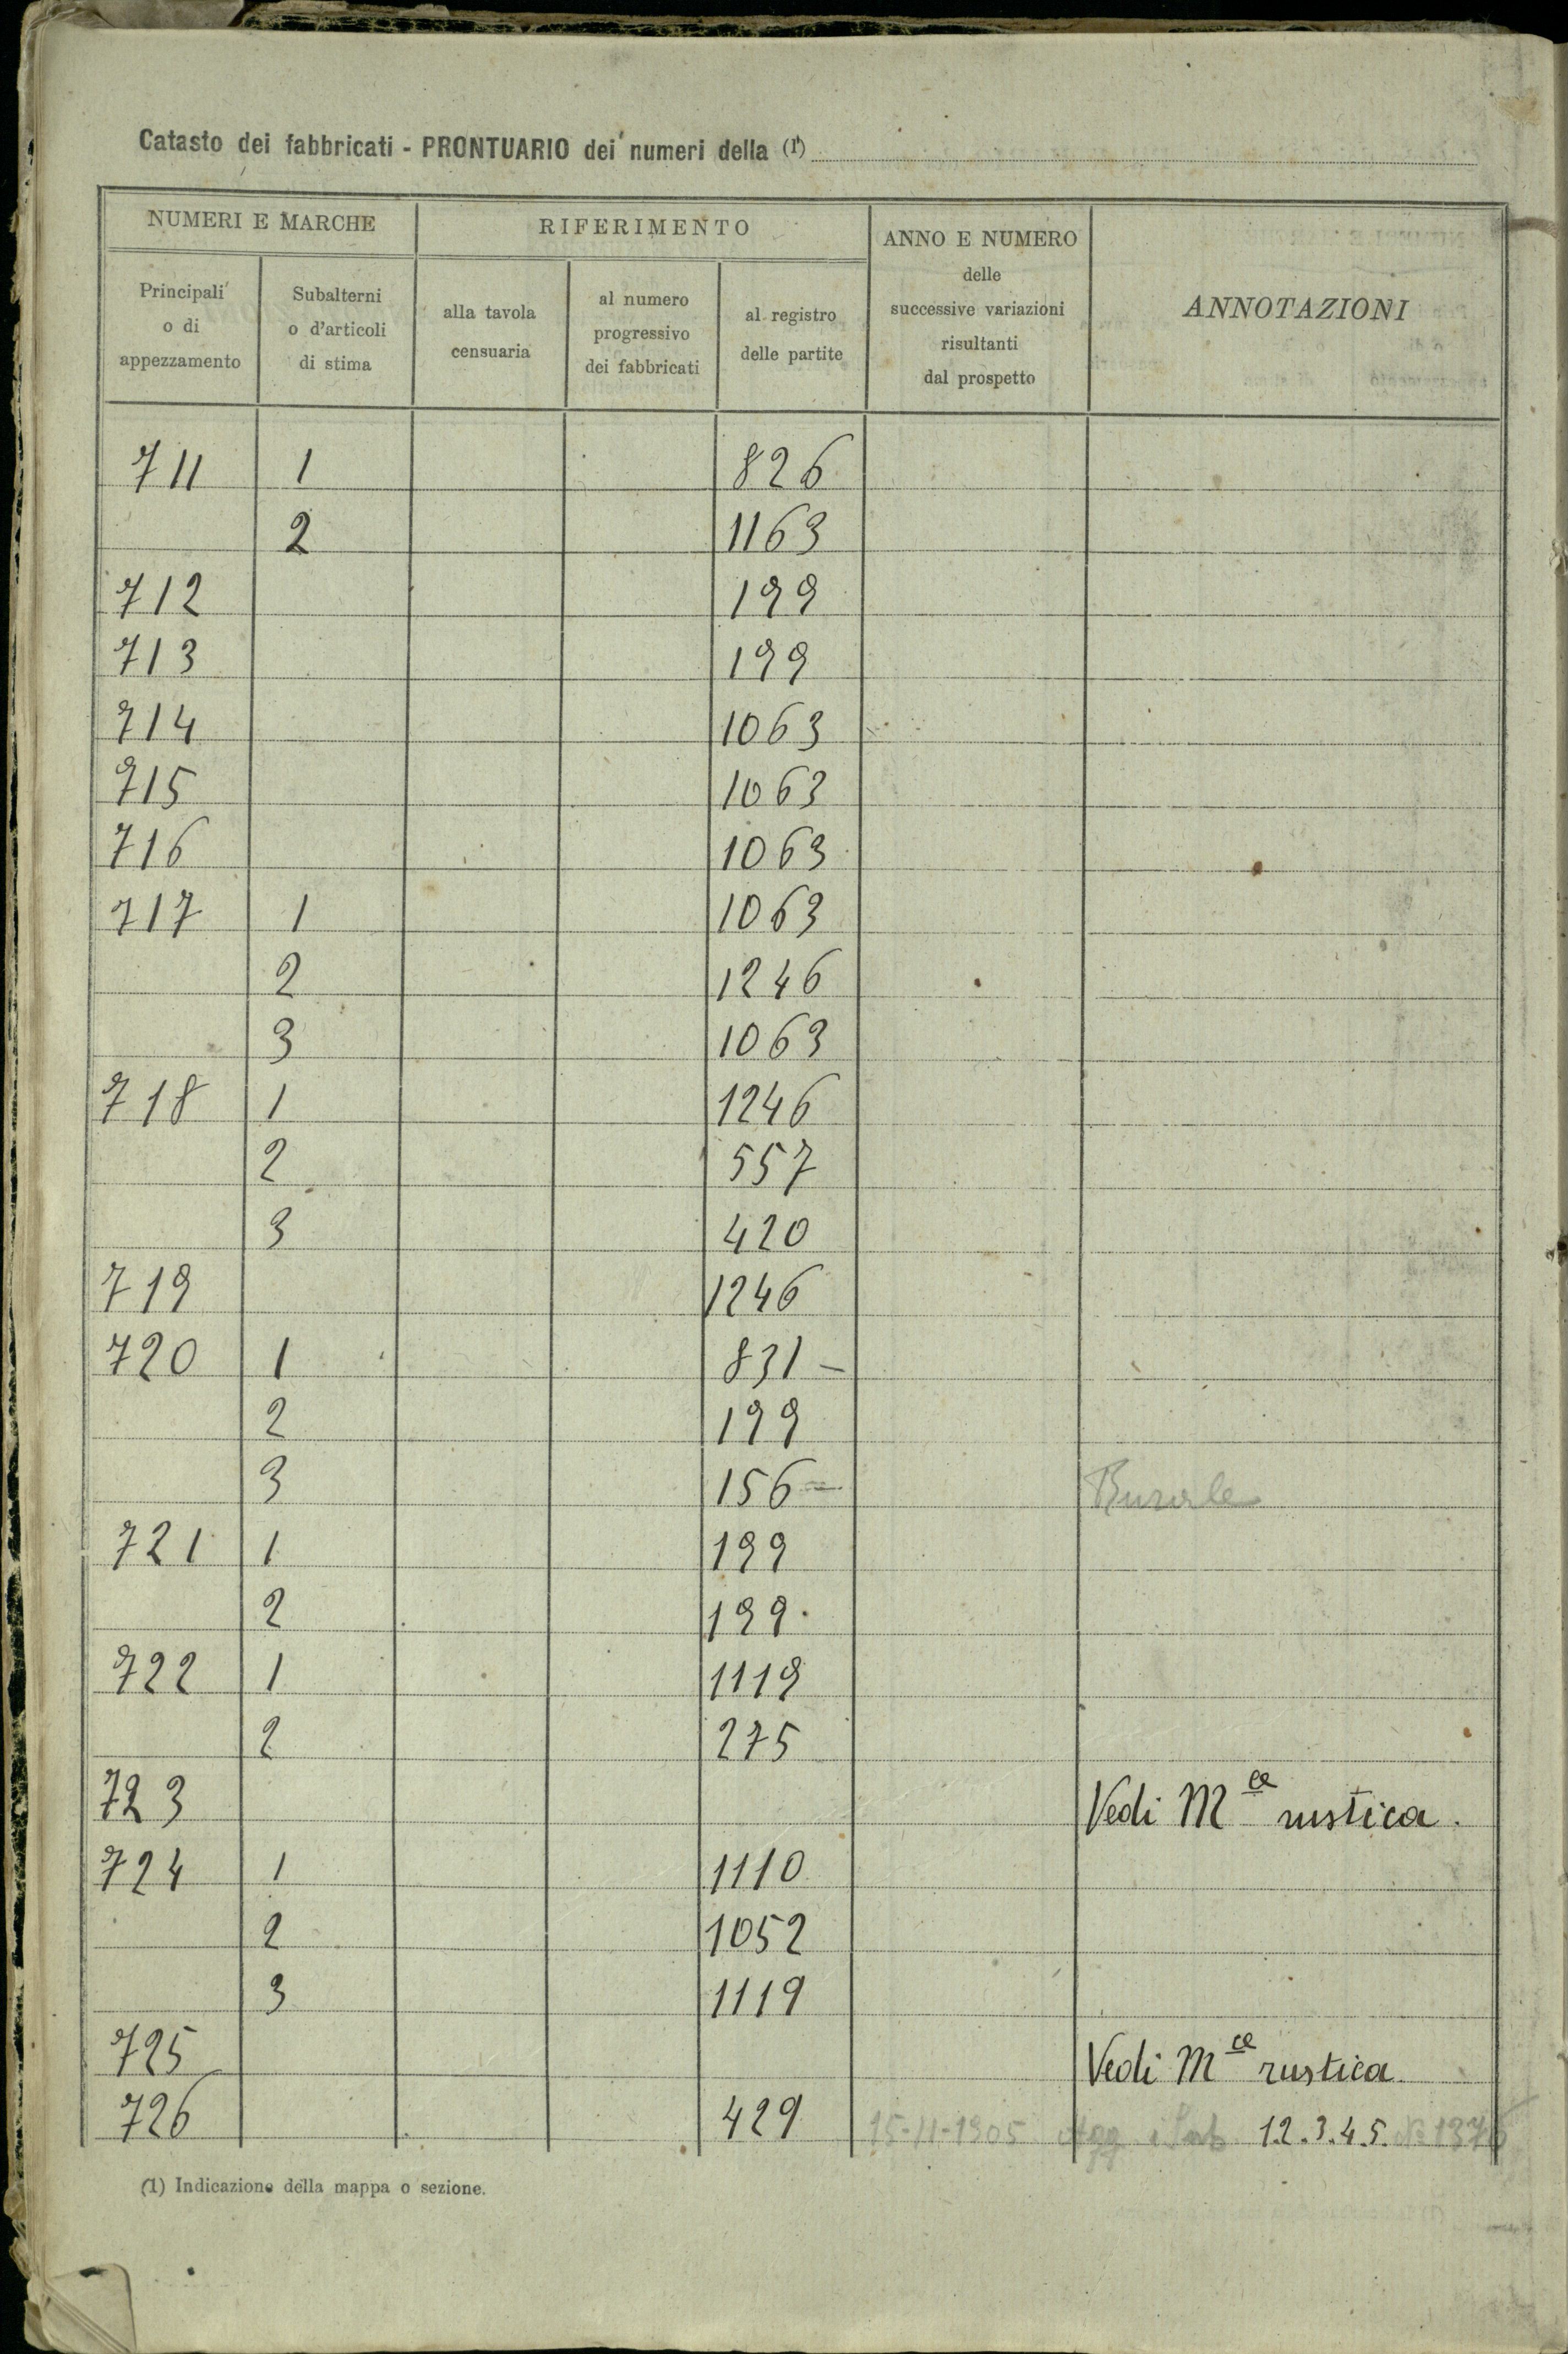 Catasto dei fabbricati - PRONTUARIO dei numeri della (1)
NUMERI E MARCHE RIFERIMENTO ANNO E NUMERO delle successive variazioni risultanti dal prospetto ANNOTAZIONI
Principali o di appezzamento Subalterni o d'articoli di stima alla tavola censuaria al numero progressivo dei fabbricati al registro delle partite
711 1 826
2 1163
712 199
713 199
714 1063
715 1063
716 1063
717 1 1063
2 1246
3 1063
718 1 1246
2 557
3 420
719 1246
720 1 831 —
2 199
3 156 —
721 1 199
2 199
722 1 1119
2 275
723 Vedi Mce rustica.
724 1 1110
2 1052
3 1119
725 Vedi Mce rustica.
726 429 15-11-1905 Agg Sub 1.2.3.4.5. N° 1376
(1) Indicazione della mappa o sezione.